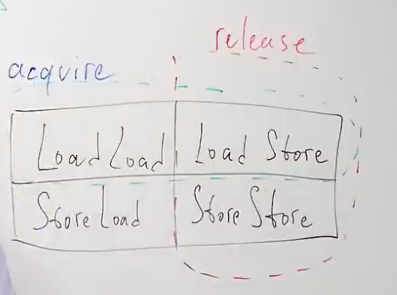 release
acquire
LoadLoad Load Store
StoreLoad Store Store